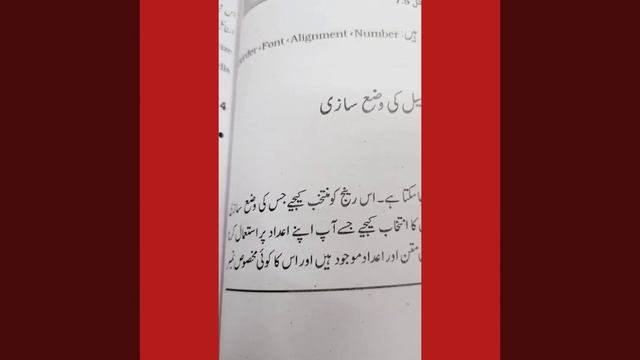 7.5
ہیں: Number، Alignment، Font،
کی وضع سازی
جاسکتا ہے۔ اس رینج کو منتخب کیجیے جس کی وضع سازی
کا انتخاب کیجیے جسے آپ اپنے اعداد پر استعمال کرنا
متن اور اعداد موجود ہیں اور اس کا کوئی مخصوص نمبر
4